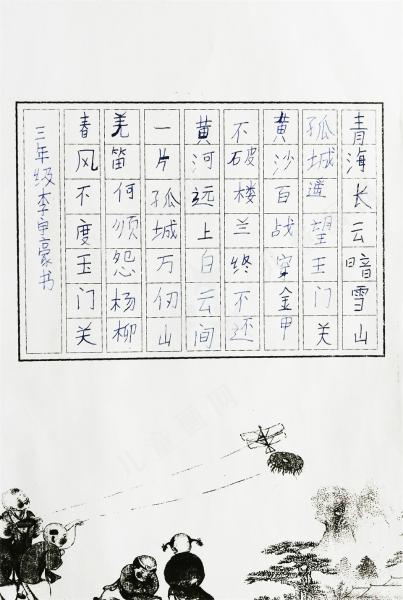 青海长云暗雪山
孤城遥望玉门关
黄沙百战穿金甲
不破楼兰终不还
黄河远上白云间
一片孤城万仞山
羌笛何须怨杨柳
春风不度玉门关
三年级李甲豪书
儿童画网